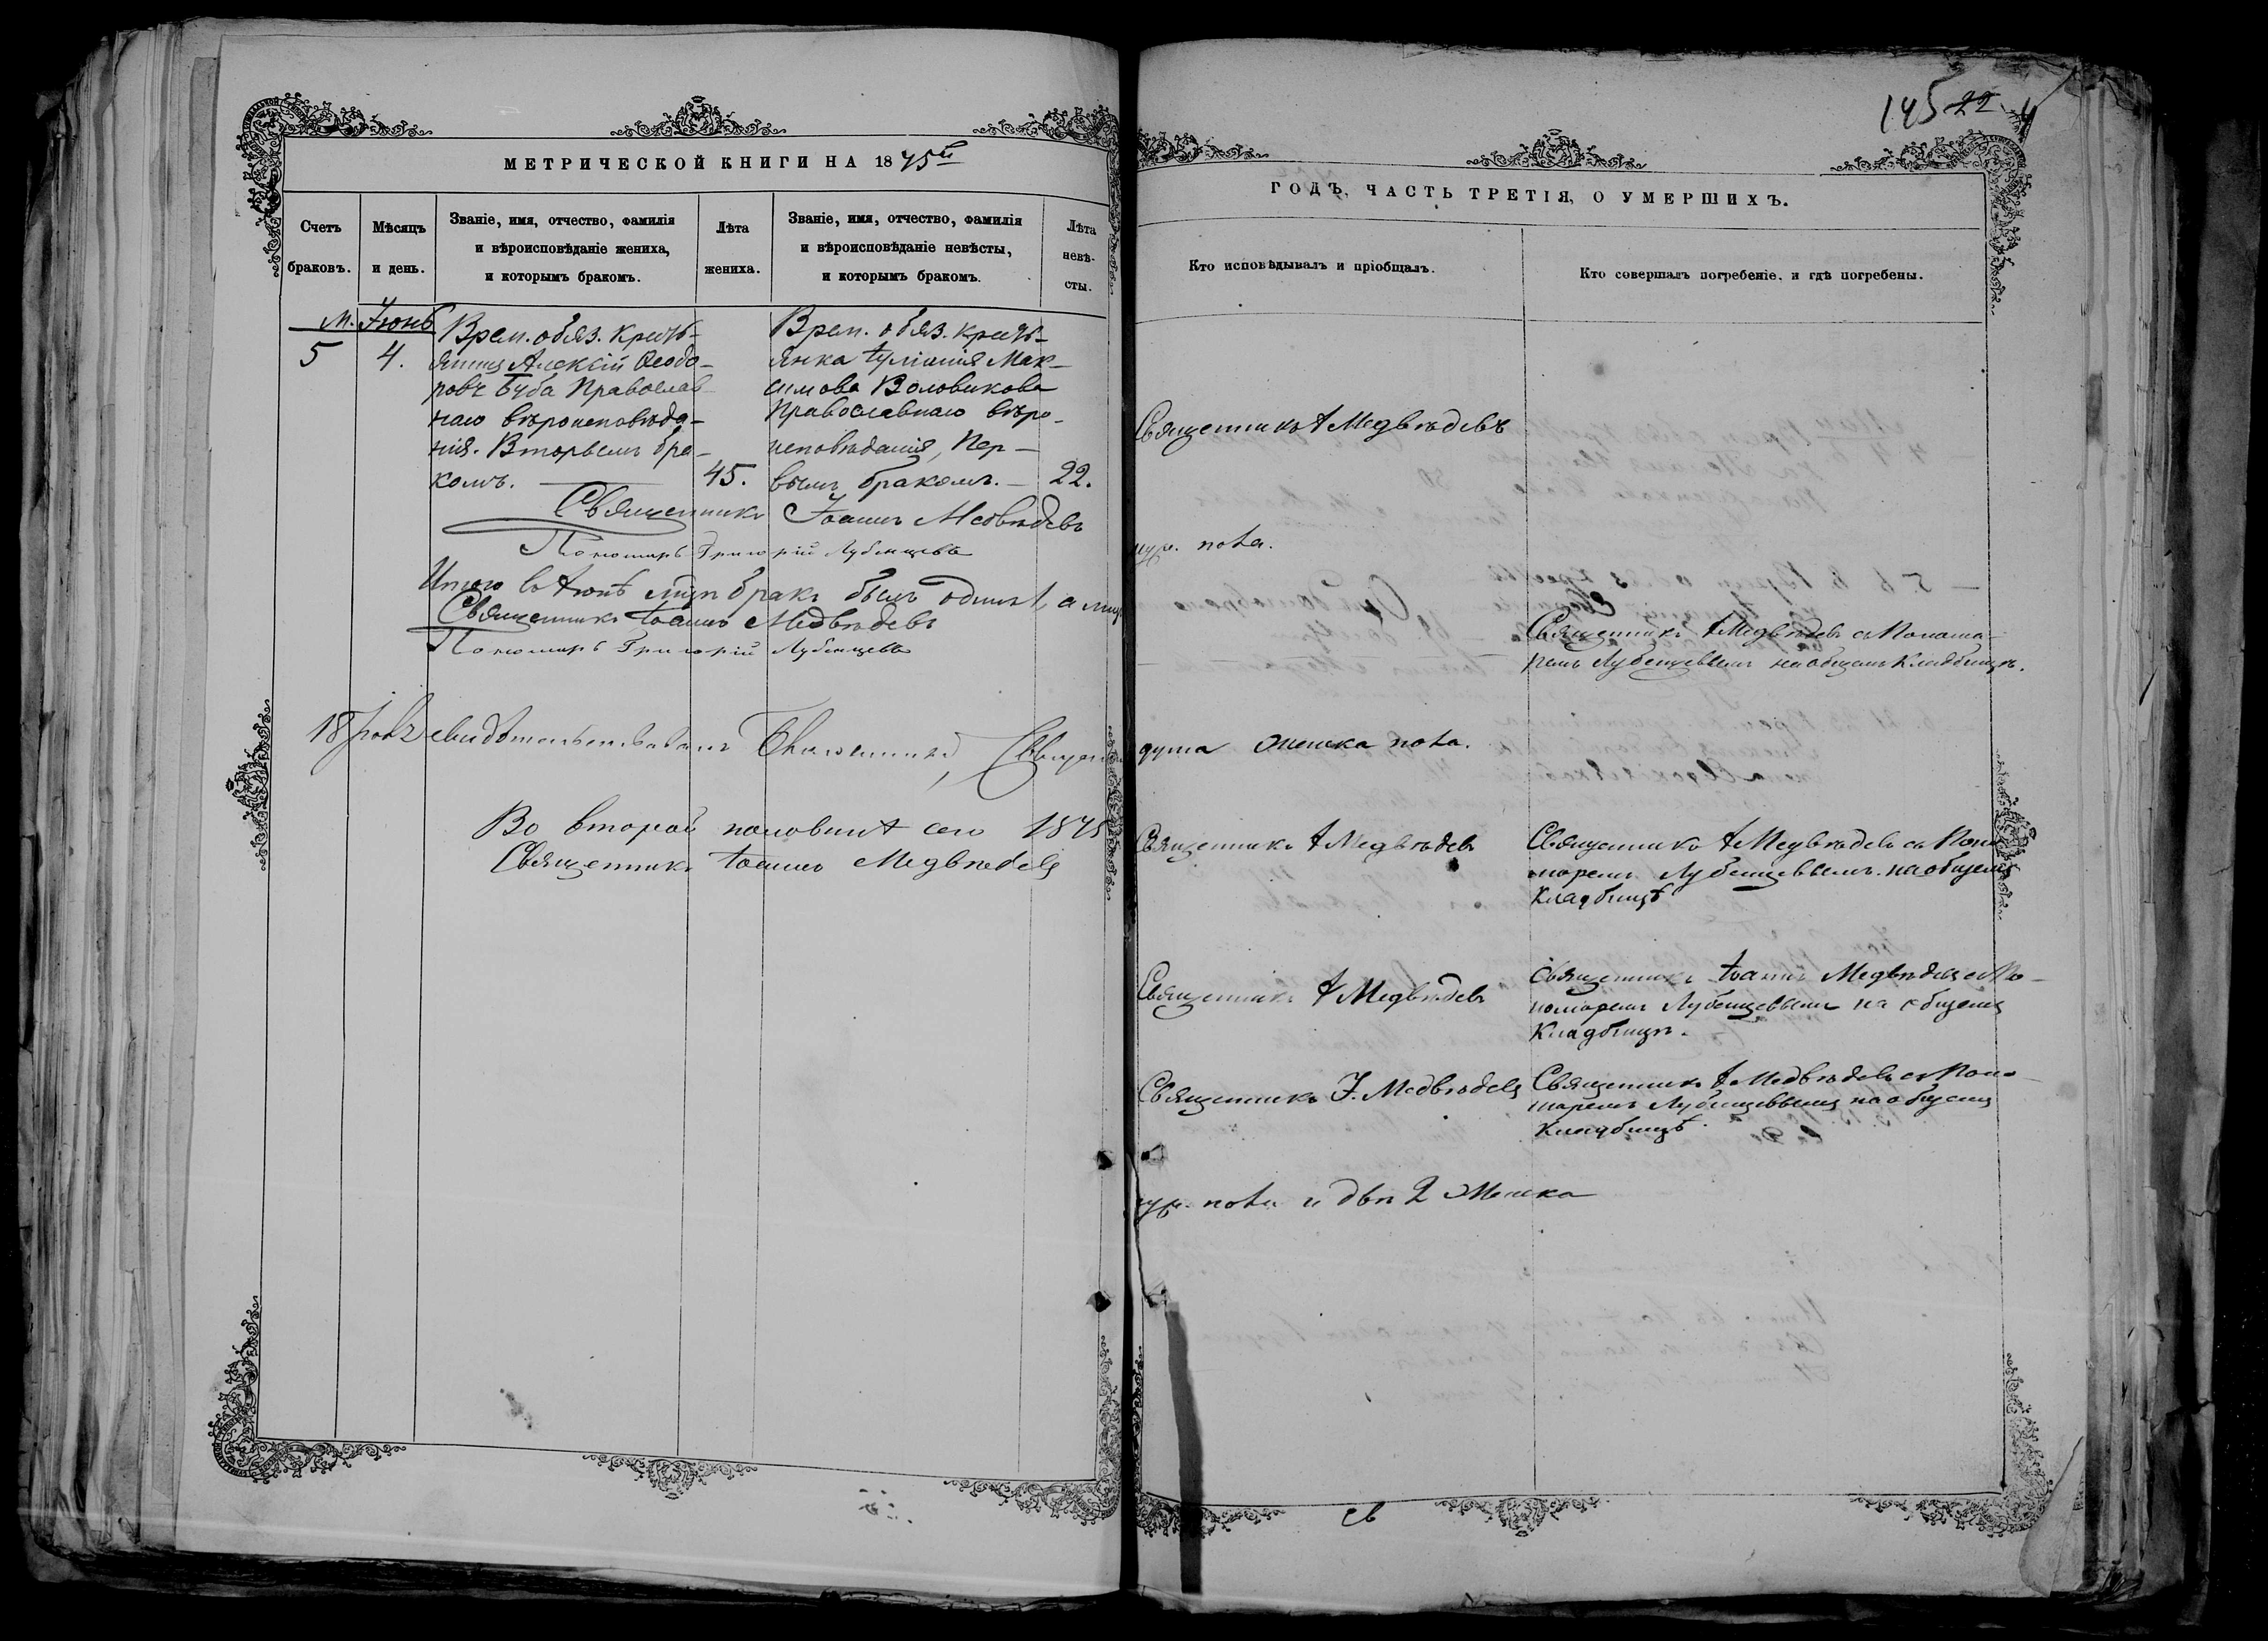 МЕТРИЧЕСКОЙ КНИГИ НА 1875й
Счетъ браковъ.
Мѣсяцъ и день.
Званіе, имя, отчество, фамилія
и вѣроисповѣданіе жениха,
и которымъ бракомъ.
Лѣта жениха.
Званіе, имя, отчество, фамилія
и вѣроисповѣданіе невѣсты,
и которымъ бракомъ.
Лѣта невѣ-
сты.
М. Іюнь
5
4.
Врем. обяз. кресть-
янинъ Алексій Ѳеодо-
ровъ Буба Православ-
наго вѣроисповѣда-
нія. Вторымъ бра-
комъ.
45.
Врем. обяз. кресть-
янка Іуліанія Мак-
симова Воловикова
Православнаго вѣро-
исповѣданія, Пер-
вымъ бракомъ.
22.
Священникъ Іоаннъ Медвѣдевъ
Пономарь Григорій Лубенцевъ
Итого въ Іюнѣ бракъ былъ одинъ 1, а
Священникъ Іоаннъ Медвѣдевъ
Пономарь Григорій Лубенцевъ
свидѣтельствовалъ
Во второй половинѣ сего 1875
Священникъ Іоаннъ Медвѣдевъ
145 22
ГОДЪ, ЧАСТЬ ТРЕТІЯ, О УМЕРШИХЪ.
Кто исповѣдывалъ и пріобщалъ.
Кто совершалъ погребеніе, и гдѣ погребены.
Священникъ І Медвѣдевъ
муж. пола.
Священникъ І Медвѣдевъ съ Понама-
ремъ Лубенцевымъ на общемъ Кладбищѣ.
душа женска пола.
Священникъ І Медвѣдевъ
Священникъ І Медвѣдевъ съ Поно-
маремъ Лубенцевымъ. на общемъ
Кладбищѣ
Священникъ І Медвѣдевъ
Священникъ Іоаннъ Медвѣдевъ съ По-
номаремъ Лубенцевымъ на общемъ
Кладбищѣ.
Священникъ І. Медвѣдевъ
Священникъ І Медвѣдевъ съ Поно-
маремъ Лубенцевымъ на общемъ
Кладбищѣ.
муж. пола и двѣ 2 женска